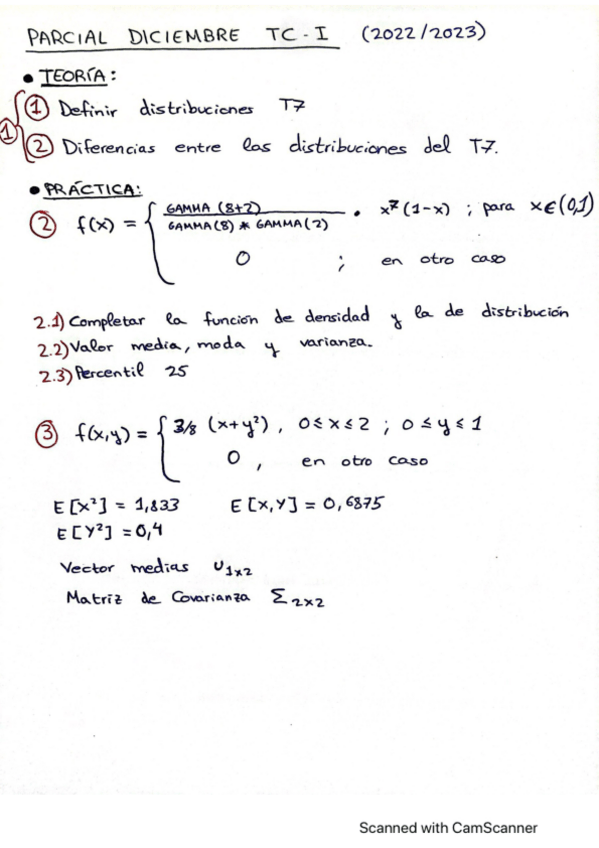 PARCIAL DICIEMBRE TC-I (2022/2023)
• TEORÍA:
1 { ① Definir distribuciones T7
② Diferencias entre las distribuciones del T7.
• PRÁCTICA:
② f(x) = { GAMMA (8+2) / GAMMA(8) * GAMMA(2) • x⁷ (1-x) ; para x∈(0,1)
0 ; en otro caso
2.1) Completar la función de densidad y la de distribución
2.2) Valor media, moda y varianza.
2.3) Percentil 25
③ f(x,y) = { 3/8 (x+y²), 0≤x≤2 ; 0≤y≤1
0, en otro caso
E[X²] = 1,833 E[X,Y] = 0,6875
E[Y²] = 0,4
Vector medias U1x2
Matriz de Covarianza Σ2x2
Scanned with CamScanner